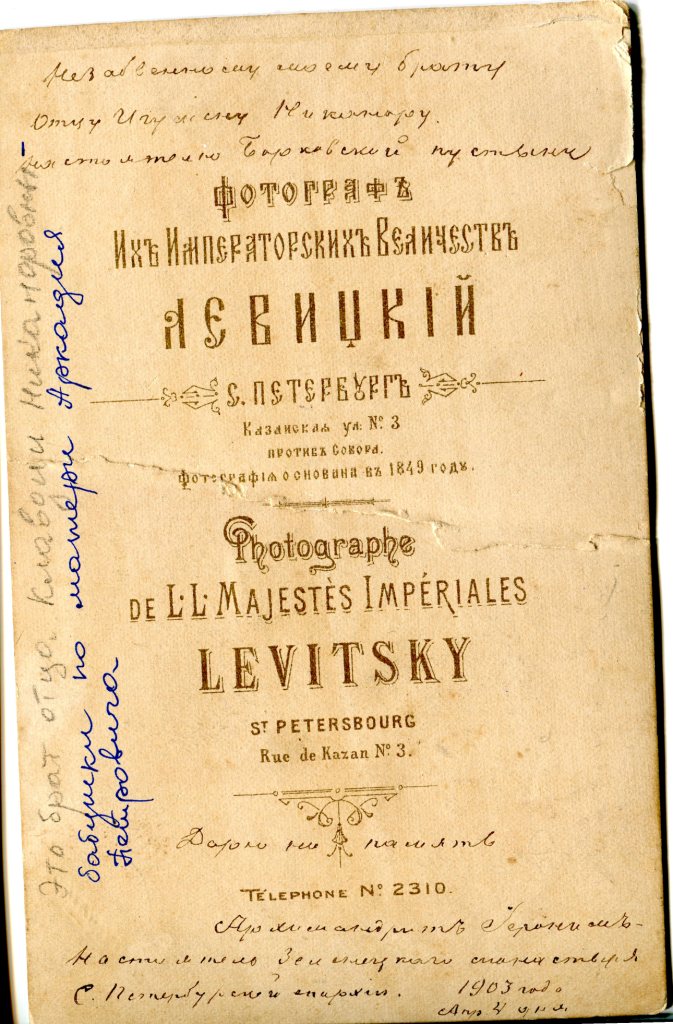 Незабвенному моему брату
Отцу Игумену Никанору.
настоятелю Борковской пустыни
ФОТОГРАФЪ
ИХЪ ИМПЕРАТОРСКИХЪ ВЕЛИЧЕСТВЪ
ЛЕВИЦКІЙ
С. ПЕТЕРБУРГЪ
КАЗАНСКАЯ УЛ: № 3
ПРОТИВЪ СОБОРА.
ФОТОГРАФІЯ ОСНОВАНА ВЪ 1849 ГОДУ.
Photographe
DE L·L· MAJESTÈS IMPÉRIALES
LEVITSKY
ST PETERSBOURG
Rue de Kazan No 3.
Дарю на память
TÉLEPHONE No 2310.
Архимандритъ Іеронимъ-
Настоятель Зеленецкаго монастыря
С. Петербургской епархіи. 1903 года
Апр 4 дня
Это брат отца Клавдии Никаноровны-
бабушки по матери Аркадия
Петровича